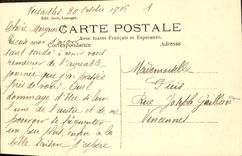 Versailles 20 Octobre 1916 1
Edit. Avril, Limoges.
CARTE POSTALE
Avec textes Français et Esperanto.
Correspondance
Adresse
Chère
tant tardé à vous
remercier de l'agréable
journée que j'ai passée
près de vous. Quel
dommage d'être si loin
l'une de l'autre et de ne
pouvoir se
un peu plus, enfin à la
belle saison j'espère
Mademoiselle
Rue Joseph Gaillard
Vincennes